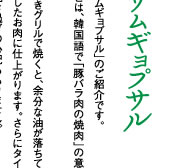 ソムギョプサル
ムギョプサル」のご紹介です。
とは、韓国語で「豚バラ肉の焼肉」の意
きグリルで焼くと、余分な油が落ちて
したお肉に仕上がります。さらにタイ